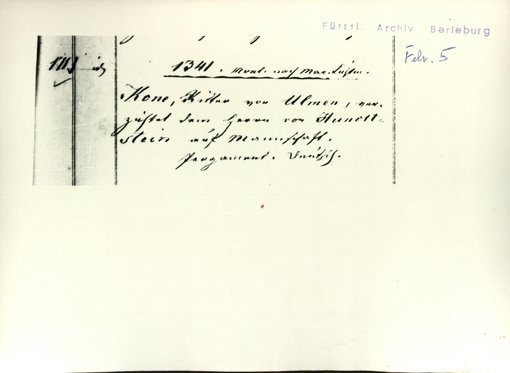 Fürstl. Archiv Berleburg
Febr. 5
1341. Mont. nach Mar. Lichtm.
Kone, Ritter von Ulmen, ver-
zichtet dem Herrn von Hunolt-
stein auf Mannschaft.
Pergament. Deutsch.